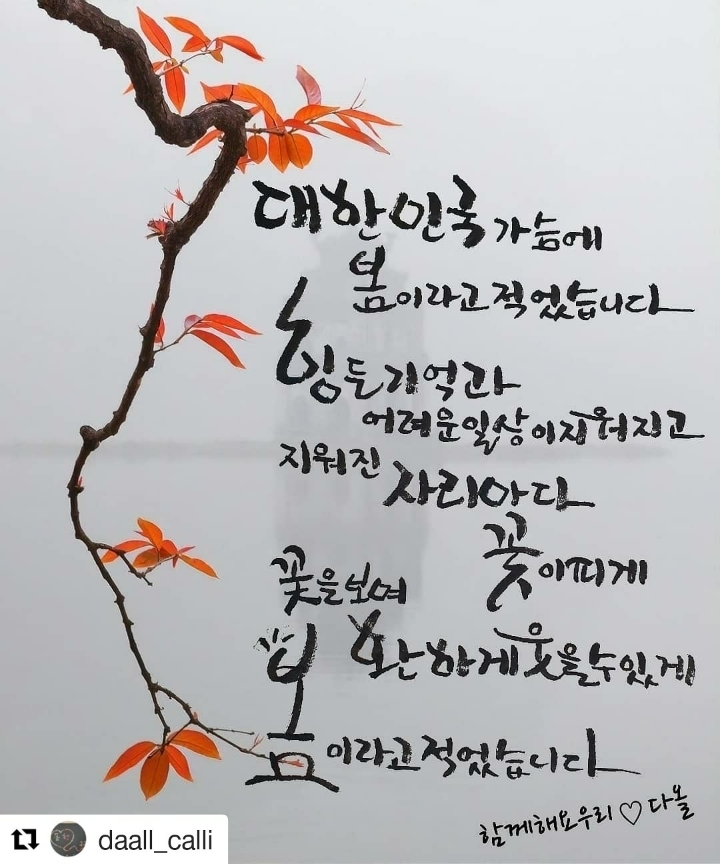 대한민국 가슴에
봄이라고 적었습니다
힘든 기억과
어려운 일상이 지워지고
지워진 자리마다
꽃이 피게
꽃을 보며
환하게 웃을 수 있게
봄이라고 적었습니다
함께해요 우리 ♡ 다올
daall_calli